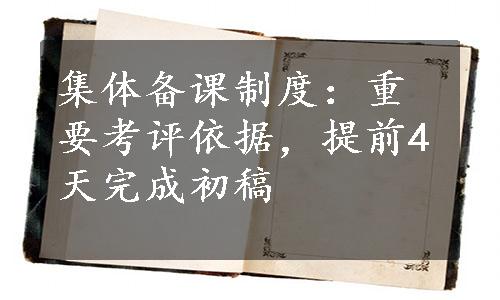 集体备课制度：重
要考评依据，提前4
天完成初稿